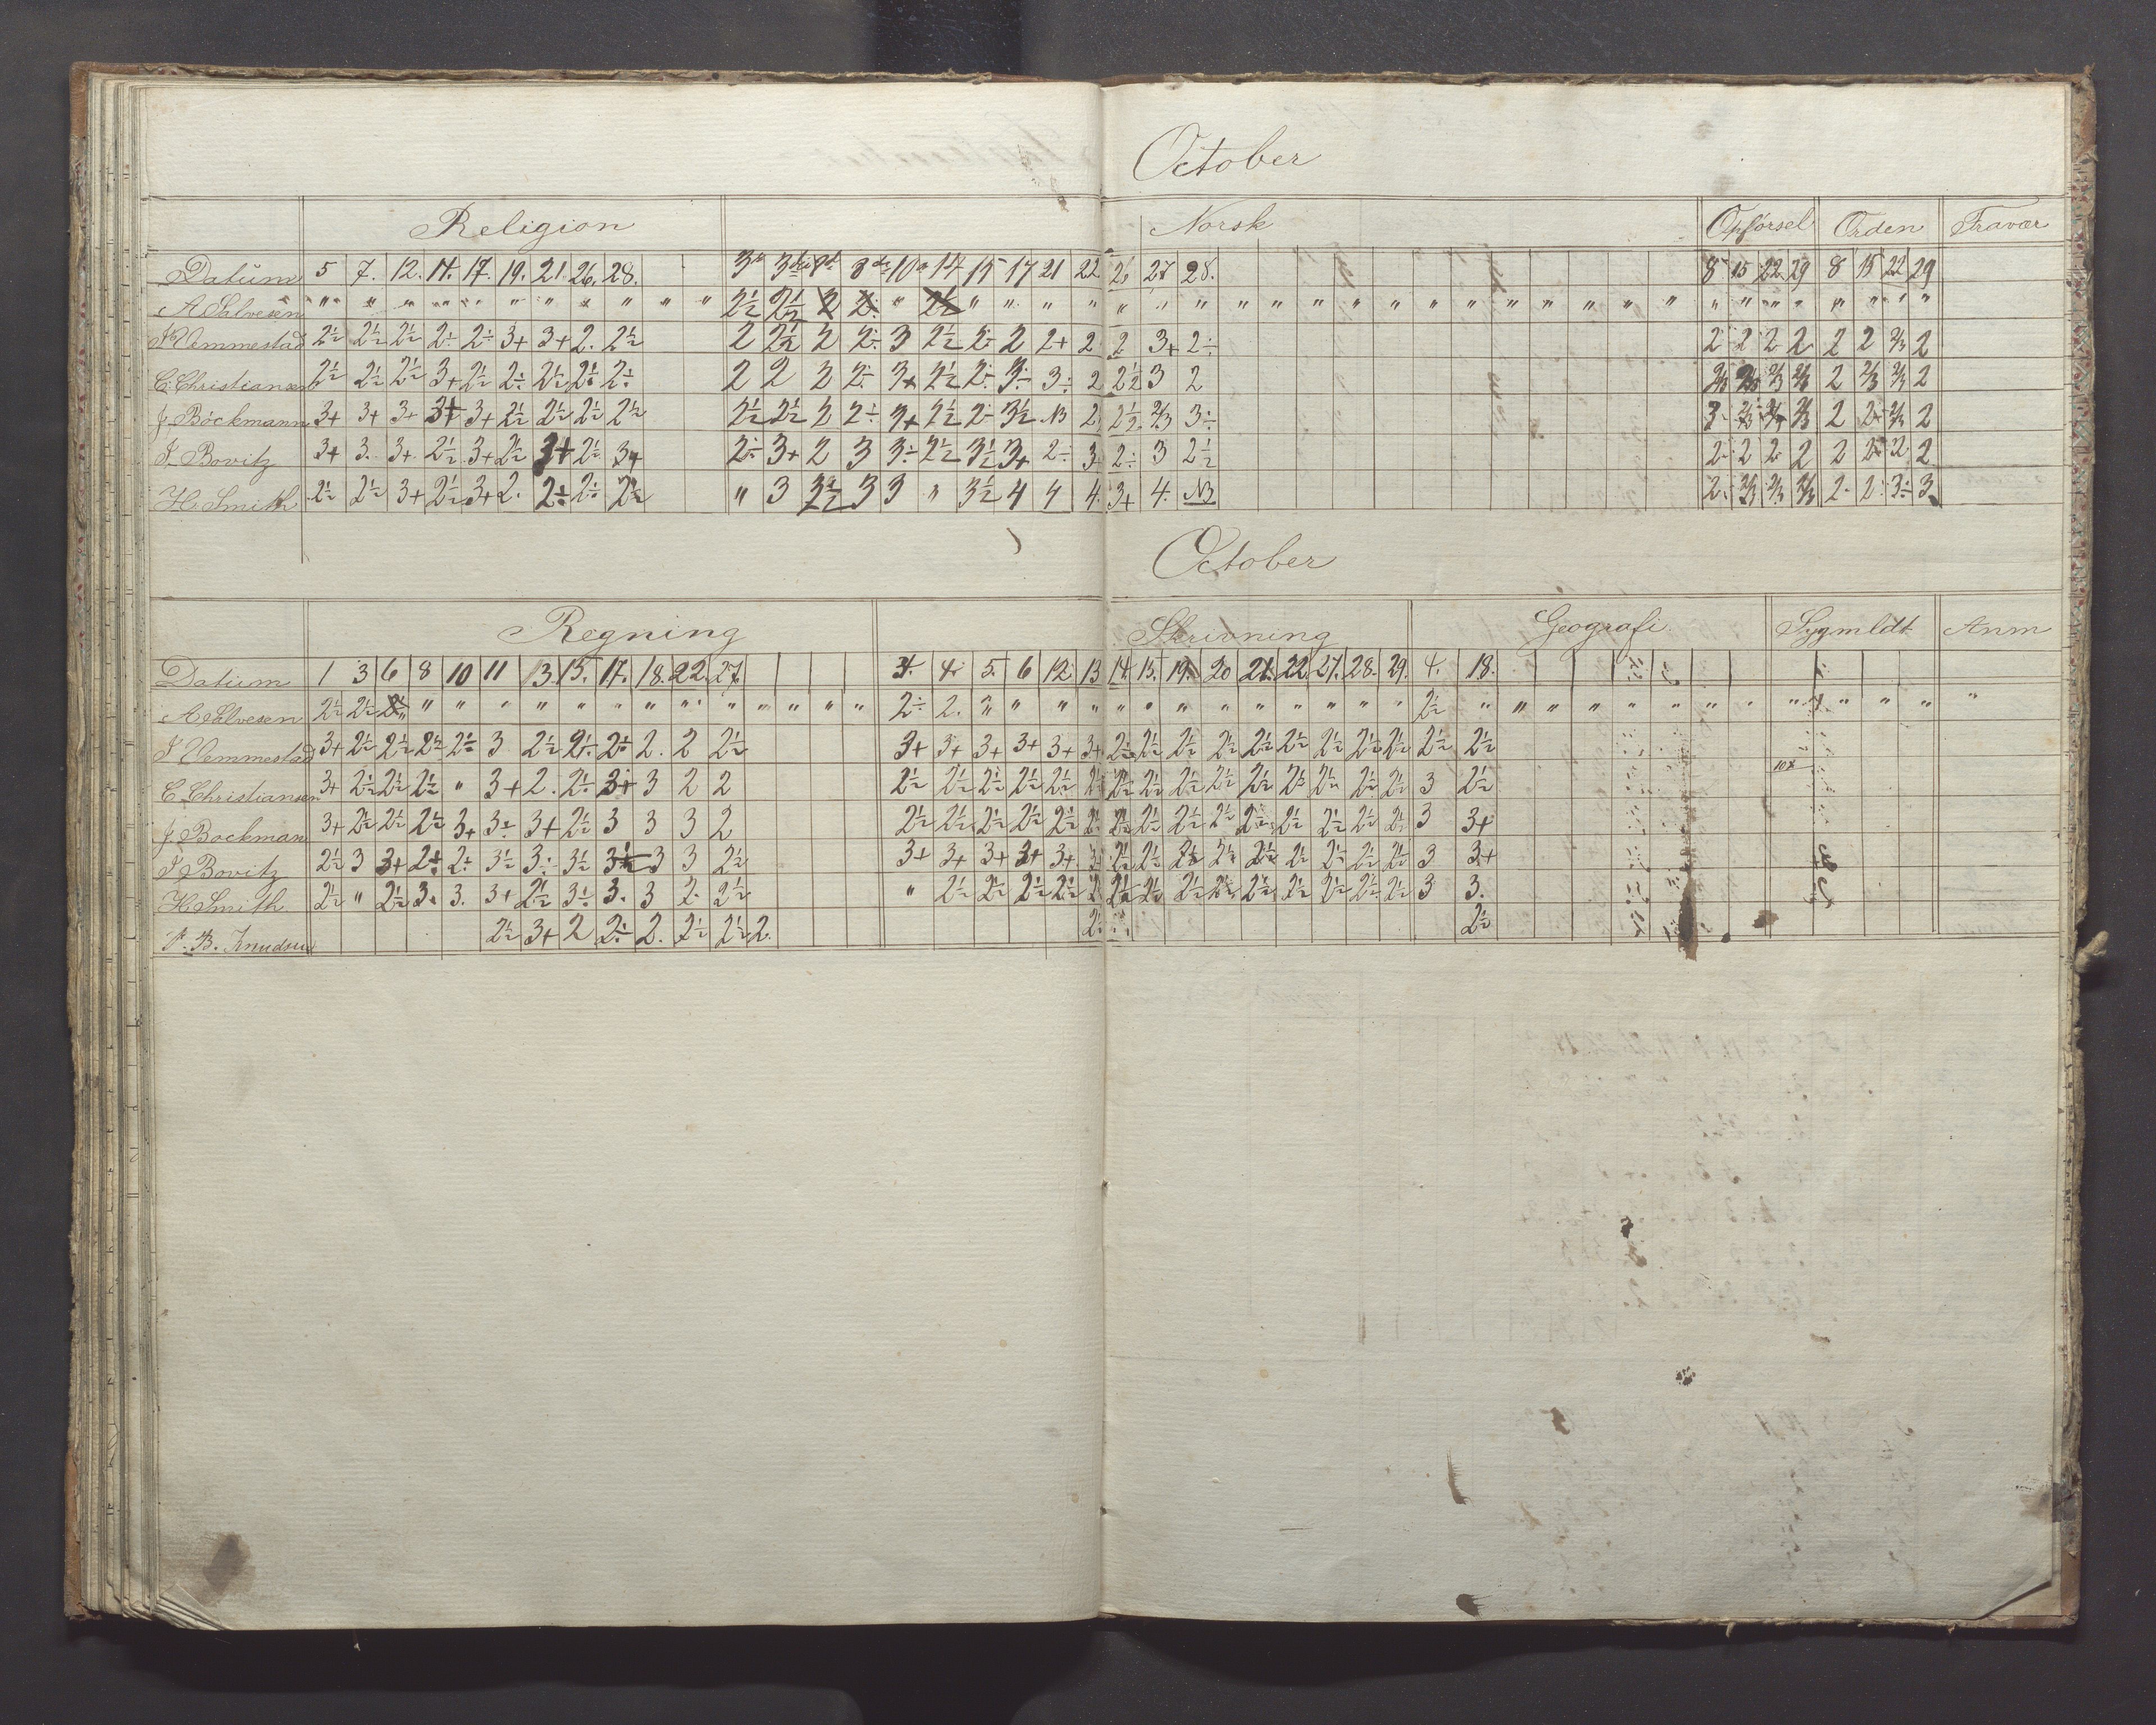 October
Religion Norsk Opførsel Orden Fravær
Datum 5 7. 12. 14. 17. 19. 21. 26. 28. 10 14 15 17 21 22 26 27 28. 8 15 22 29 8 15 22 29
A Salvesen " " " " " " " " " " " "
Vemmestad 2½ 2½ 2½ 2÷ 2÷ 3+ 3+ 2. 2½ 2 2½ 2 2÷ 3 2½ 2÷ 2 2+ 2 2 3+ 2÷ 2 2 2 2 2 2 2/3 2
C. Christiansen 2½ 2½ 2½ 3+ 2½ 2÷ 2½ 2½ 2÷ 2 2 2 2÷ 3+ 2½ 2÷ 3÷ 3÷ 2 2½ 3 2 2/3 2/3 2/3 2/3 2 2/3 2/3 2
J. Böckmann 3+ 3+ 3+ 3+ 3+ 2½ 2½ 2½ 2½ 2½ 2½ 2 2÷ 3+ 2½ 2÷ 3½ N3 2 2½ 2/3 3÷ 2 2
Bovitz 3+ 3. 3+ 2½ 3+ 2½ 3+ 2½ 3+ 2÷ 3+ 2 3 3÷ 2½ 3½ 3+ 2÷ 3 2÷ 3 2½ 2 2 2 2 2 2 2 2
H. Smith 2½ 2½ 3+ 2½ 3+ 2. 2÷ 2÷ 2½ " 3 3½ 3 3 " 3½ 4 4 4. 3+ 4. N3 2 2/3 2/3 2/3 2 2 3÷ 3
October
Regning Skrivning Geografi Sygmldt Anm
Datum 1 3 6 8 10 11 13. 15. 17. 18. 22. 27. 3. 4. 5. 6 12. 13 14. 15. 19. 20 21. 22 27. 28. 29. 4. 18.
A Salvesen 2½ 2½ " " " " " " " " " " " " 2÷ 2. " " " " " " " " " " " " " 2½ " " " " " " " " " " " " " "
Vemmestad 3+ 2½ 2½ 2½ 2½ 3 2½ 2½ 2÷ 2. 2 2½ 3+ 3+ 3+ 3+ 3+ 3+ 2½ 2½ 2½ 2½ 2½ 2½ 2½ 2½ 2½ 2½ 2½
C Christiansen 3+ 2½ 2½ 2½ " 3+ 2. 2½ 3+ 3 2 2 2½ 2½ 2½ 2½ 2½ 2½ 2½ 2½ 2½ 2½ 2½ 2½ 2½ 2½ 2½ 3 2½
J Bockman 3+ 2½ 2½ 2½ 3+ 3÷ 3+ 2½ 3 3 3 2 2½ 2½ 2½ 2½ 2½ 2½ 2½ 2½ 2½ 2½ 2½ 2½ 2½ 2½ 2½ 3 3+
Bovitz 2½ 3 3+ 2÷ 2÷ 3½ 3÷ 3½ 3½ 3 3 2½ 3+ 3+ 3+ 3+ 3+ 3 2½ 2½ 2½ 2½ 2½ 2½ 2½ 2½ 2½ 3 3+
H Smith 2½ " 2½ 3. 3. 3+ 2½ 3½ 3. 3 2. 2½ " 2½ 2½ 2½ 2½ 2½ 2½ 2½ 2½ 2½ 2½ 2½ 2½ 2½ 3 3.
B. Knudsen 2½ 3+ 2 2÷ 2. 2½ 2½ 2. 2½ 2½